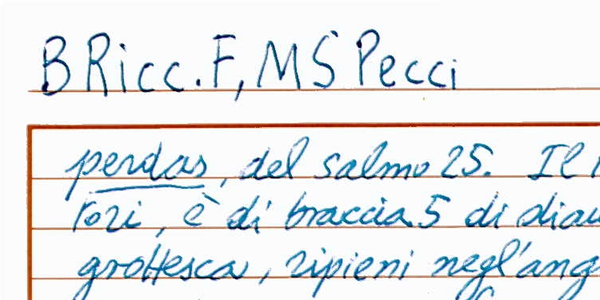 B Ricc. F, MS Pecci
perdas, del salmo 25. Il
rozi, è di braccia 5 di
grottesca, ripieni negl'ang